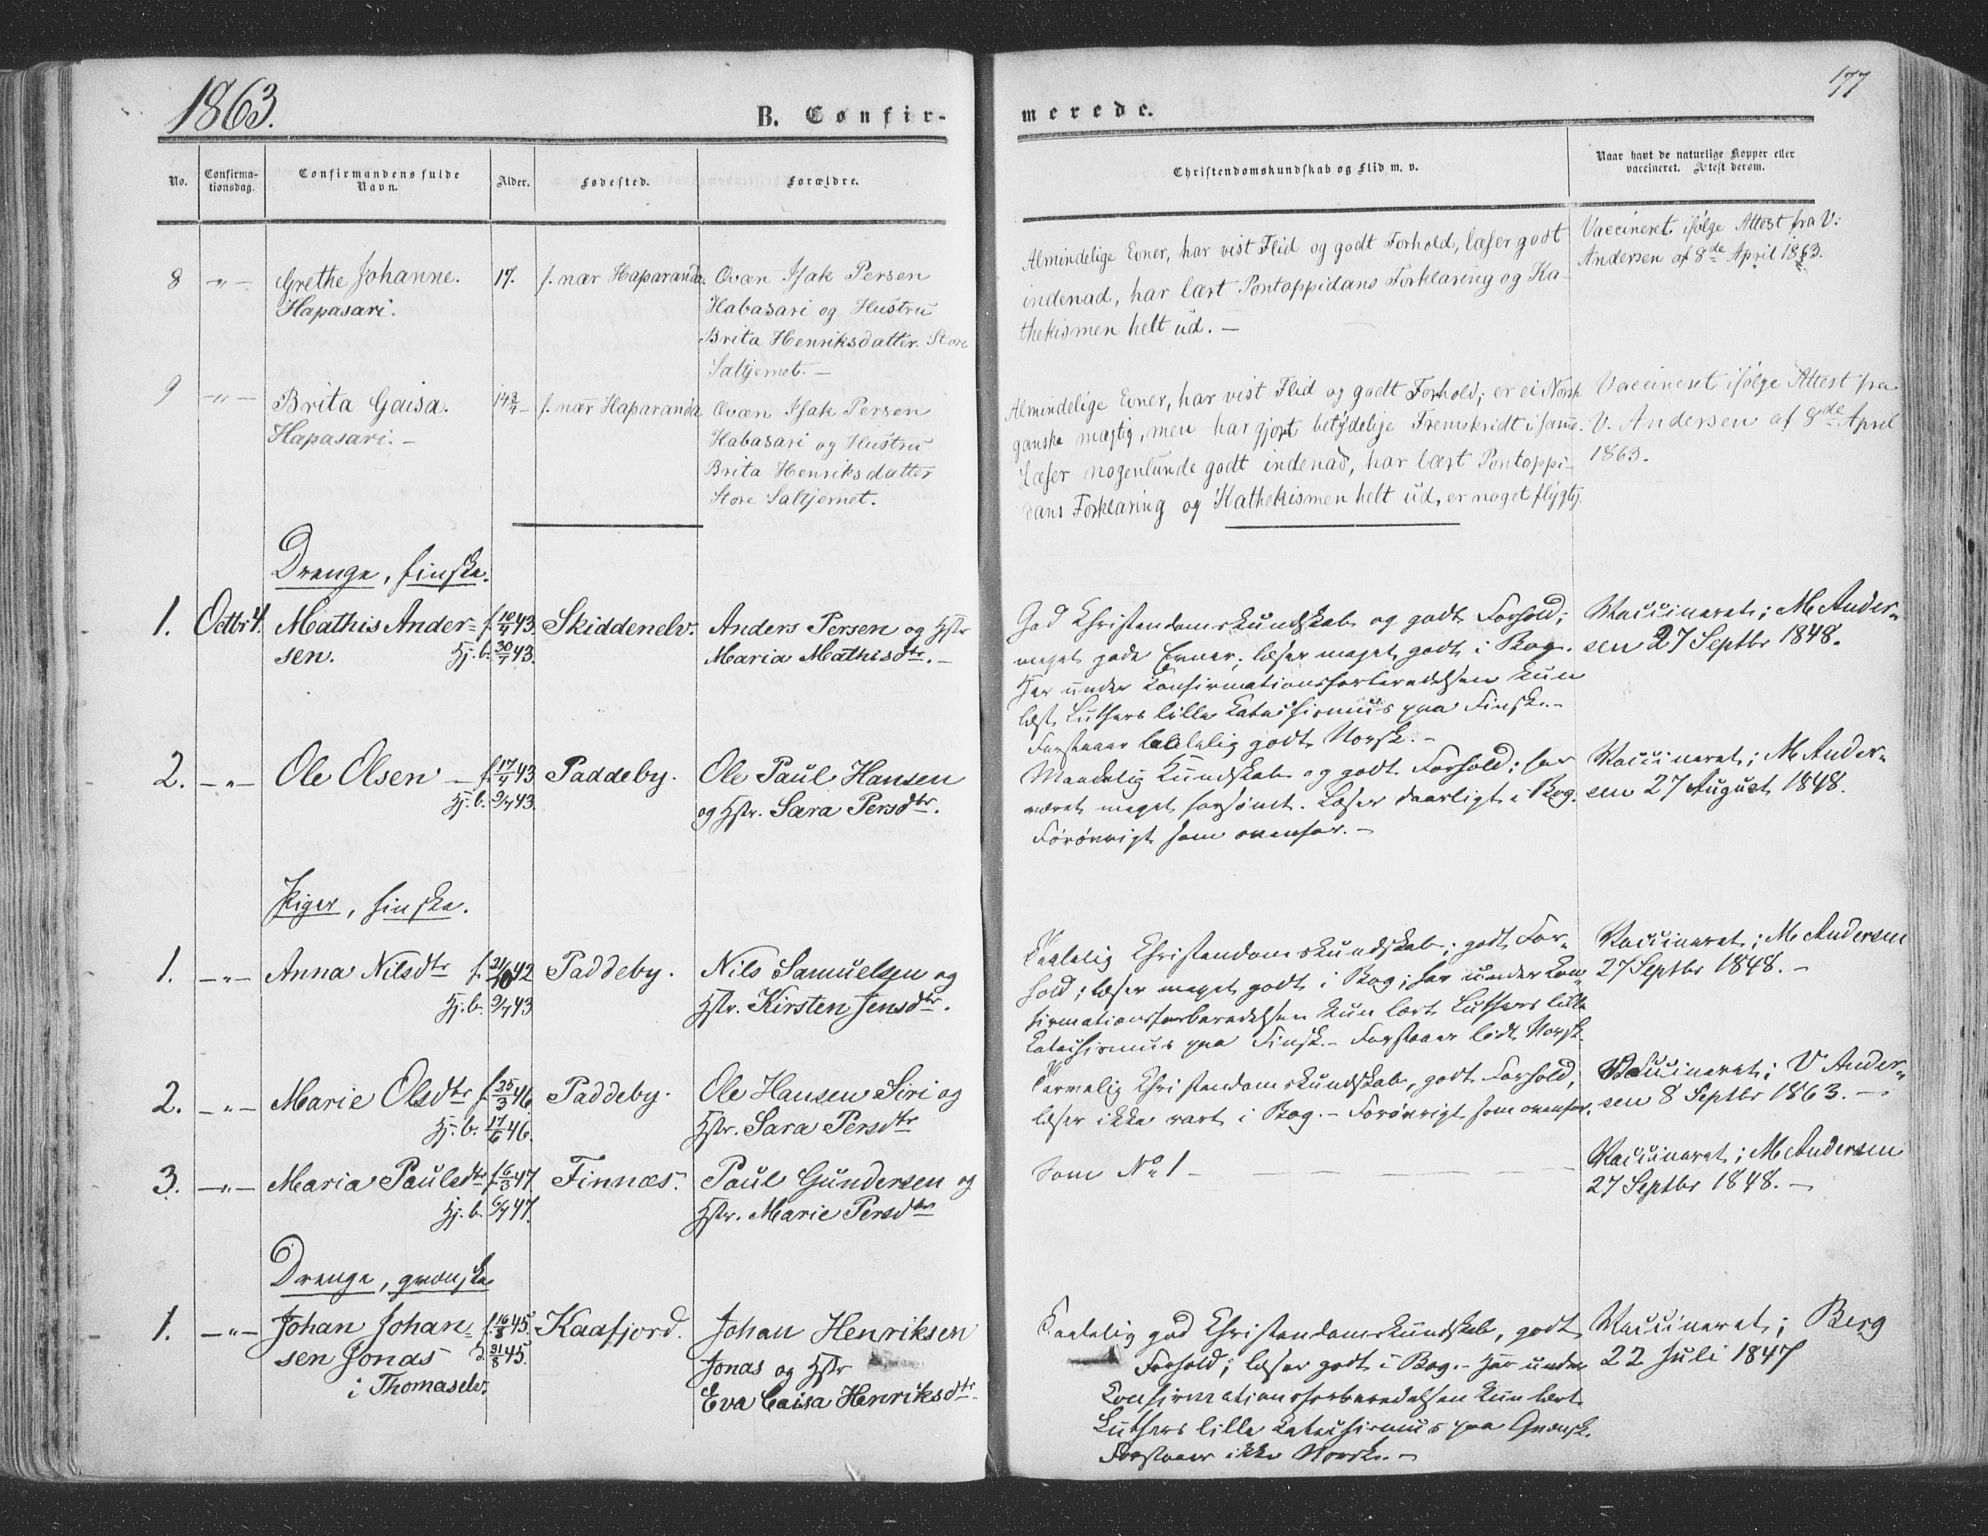 1863.
B. Confir-
No.
Confirma-
tionsdag.
Confirmandens fulde
Navn.
Alder.
Fødested.
Forældre.
8 -"- Grethe Johanne. 17. f. nær Haparanda. Ovan Isak Persen
Hapasari. Habasari og Hustru
Brita Henriksdatter. Store
Saltjernet. -
9 -"- Brita Gaisa. 14 3/4 - f. nær Haparanda Ovan Isak Persen
Hapasari. - Habasari og Hustru
Brita Henriksdatter
Store Saltjernet.
Drenge, finske.
1. Octbr 4. Mathis Ander= f. 10/4 43. Skiddenelv. Anders Persen og Hstr
sen. Hj. b. 30/4 43. Maria Mathisdtr. -
2. -"- Ole Olsen - f. 17/4 43 Paddeby. Ole Paul Hansen
Hj. b. 9/7 43. og Hstr. Sara Persdtr.
Piger, finske.
1. -"- Anna Nilsdtr f. 21/10 42 Paddeby. Nils Samuelsen og
Hj. b. 9/7 43 Hstr. Kirsten Jensdtr.
2. -"- Marie Olsdtr f. 25/3 46 Paddeby. Ole Hansen Siri og
Hj. b. 17/6 46. Hstr. Sara Persdtr
3. -"- Maria Paulsdtr f. 6/3 47. Finnæs. Paul Gundersen og
Hj. b. 6/4 47. Hstr. Marie Persdtr
Drenge, qvænske
1. -"- Johan Johan= f. 16/8 45. Kaafjord. Johan Henriksen
sen Jonas d. 31/8 45. Jonas og Hstr
i Thomaselv. Eva Caisa Henriksdtr.
177
merede.
Christendomskundskab og Flid m. v.
Naar havt de naturlige Kopper eller
vaccineret. Attest derom.
Almindelige Evner, har vist Flid og godt Forhold, læser godt
indenad, har lært Pontoppidans Forklaring og Ka-
thekismen helt ud. -
Vaccineret ifølge Attest fra V:
Andersen af 8de April 1863.
Almindelige Evner, har vist Flid og godt Forhold; er ei Norsk
ganske mægtig, men har gjort betydelige Fremskridt i samme.
Læser nogenlunde godt indenad, har lært Pontoppi-
dans Forklaring og Kathekismen helt ud, er noget flygtig.
Vaccineret ifølge Attest fra
V. Andersen af 8de April
1863.
God Christendomskundskab og godt Forhold;
meget gode Evner; læser meget godt i Bog.
Har under Confirmationsforberedelsen kun
læst Luthers lille Catechismus paa Finsk. -
Forstaaer taalelig godt Norsk. -
Vaccineret; M Ander=
sen 27 Septbr 1848.
Maadelig Kundskab og godt Forhold; har
været meget forsømt. Læser daarligt i Bog.
Forøvrigt som ovenfor. -
Vaccineret; M Ander=
sen 27 August 1848.
Taalelig Christendomskundskab; godt For=
hold; læser meget godt i Bog; har under Con=
firmationsforberedelsen kun lært Luthers lille
Catechismus paa Finsk. - Forstaaer lidt Norsk.
Vaccineret; M Andersen
27 Septbr 1848. -
Tarvelig Christendomskundskab, godt Forhold,
læser ikke rart i Bog. - Forøvrigt som ovenfor.
Vaccineret; V Ander=
sen 8 Septbr 1863. -
Som No 1 -
Vaccineret; M Andersen
27 Septbr 1848. -
Taalelig god Christendomskundskab, godt
Forhold; læser godt i Bog. - Har under
Confirmationsforberedelsen kun lært
Luthers lille Catechismus paa Qvænsk.
Forstaaer ikke Norsk. -
Vaccineret; Berg
22 Juli 1847